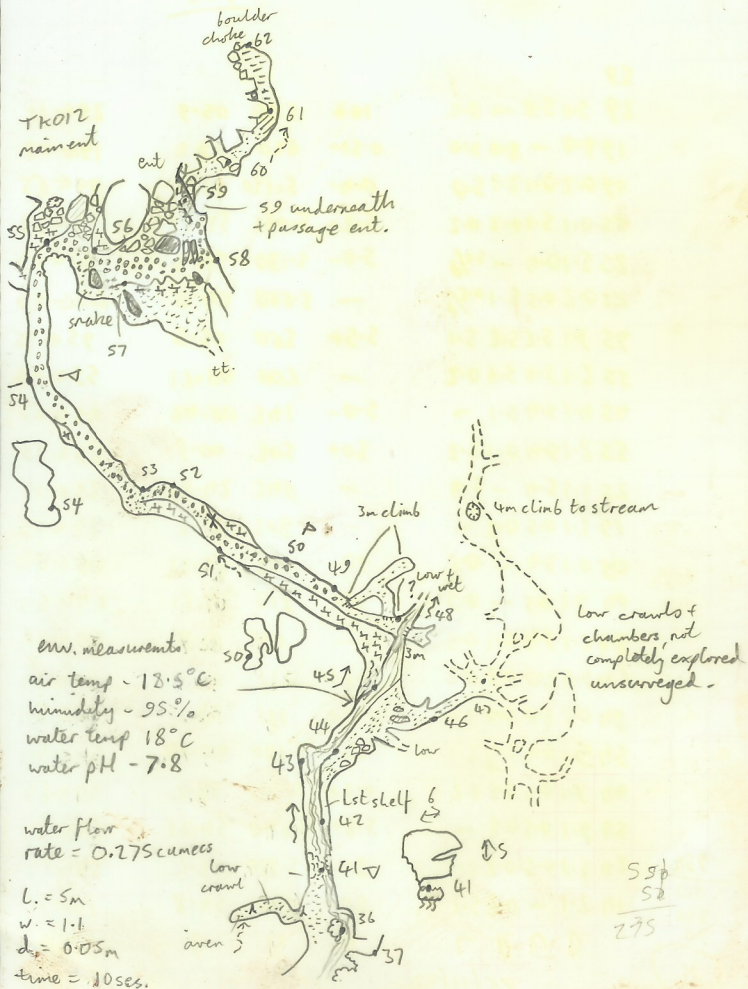 boulder
choke
62
TK012
main ent
61
ent
60
59
59 underneath
+ passage ent.
55
56
58
snake
57
tt.
54
54
53
52
3m climb
4m climb to stream
50
49
51
low +
wet
48
Low crawls +
chambers, not
completely explored
unsurveyed.
50
3m
env. measurements
air temp - 18.5°C
humidity - 95%
water temp 18°C
water pH - 7.8
45
47
46
44
43
low
Lst shelf
42
6
5
41
41
water flow
rate = 0.275 cumecs
low
crawl
L. = 5m
w. = 1.1
d. = 0.05m
time = 10secs.
aven
36
37
275